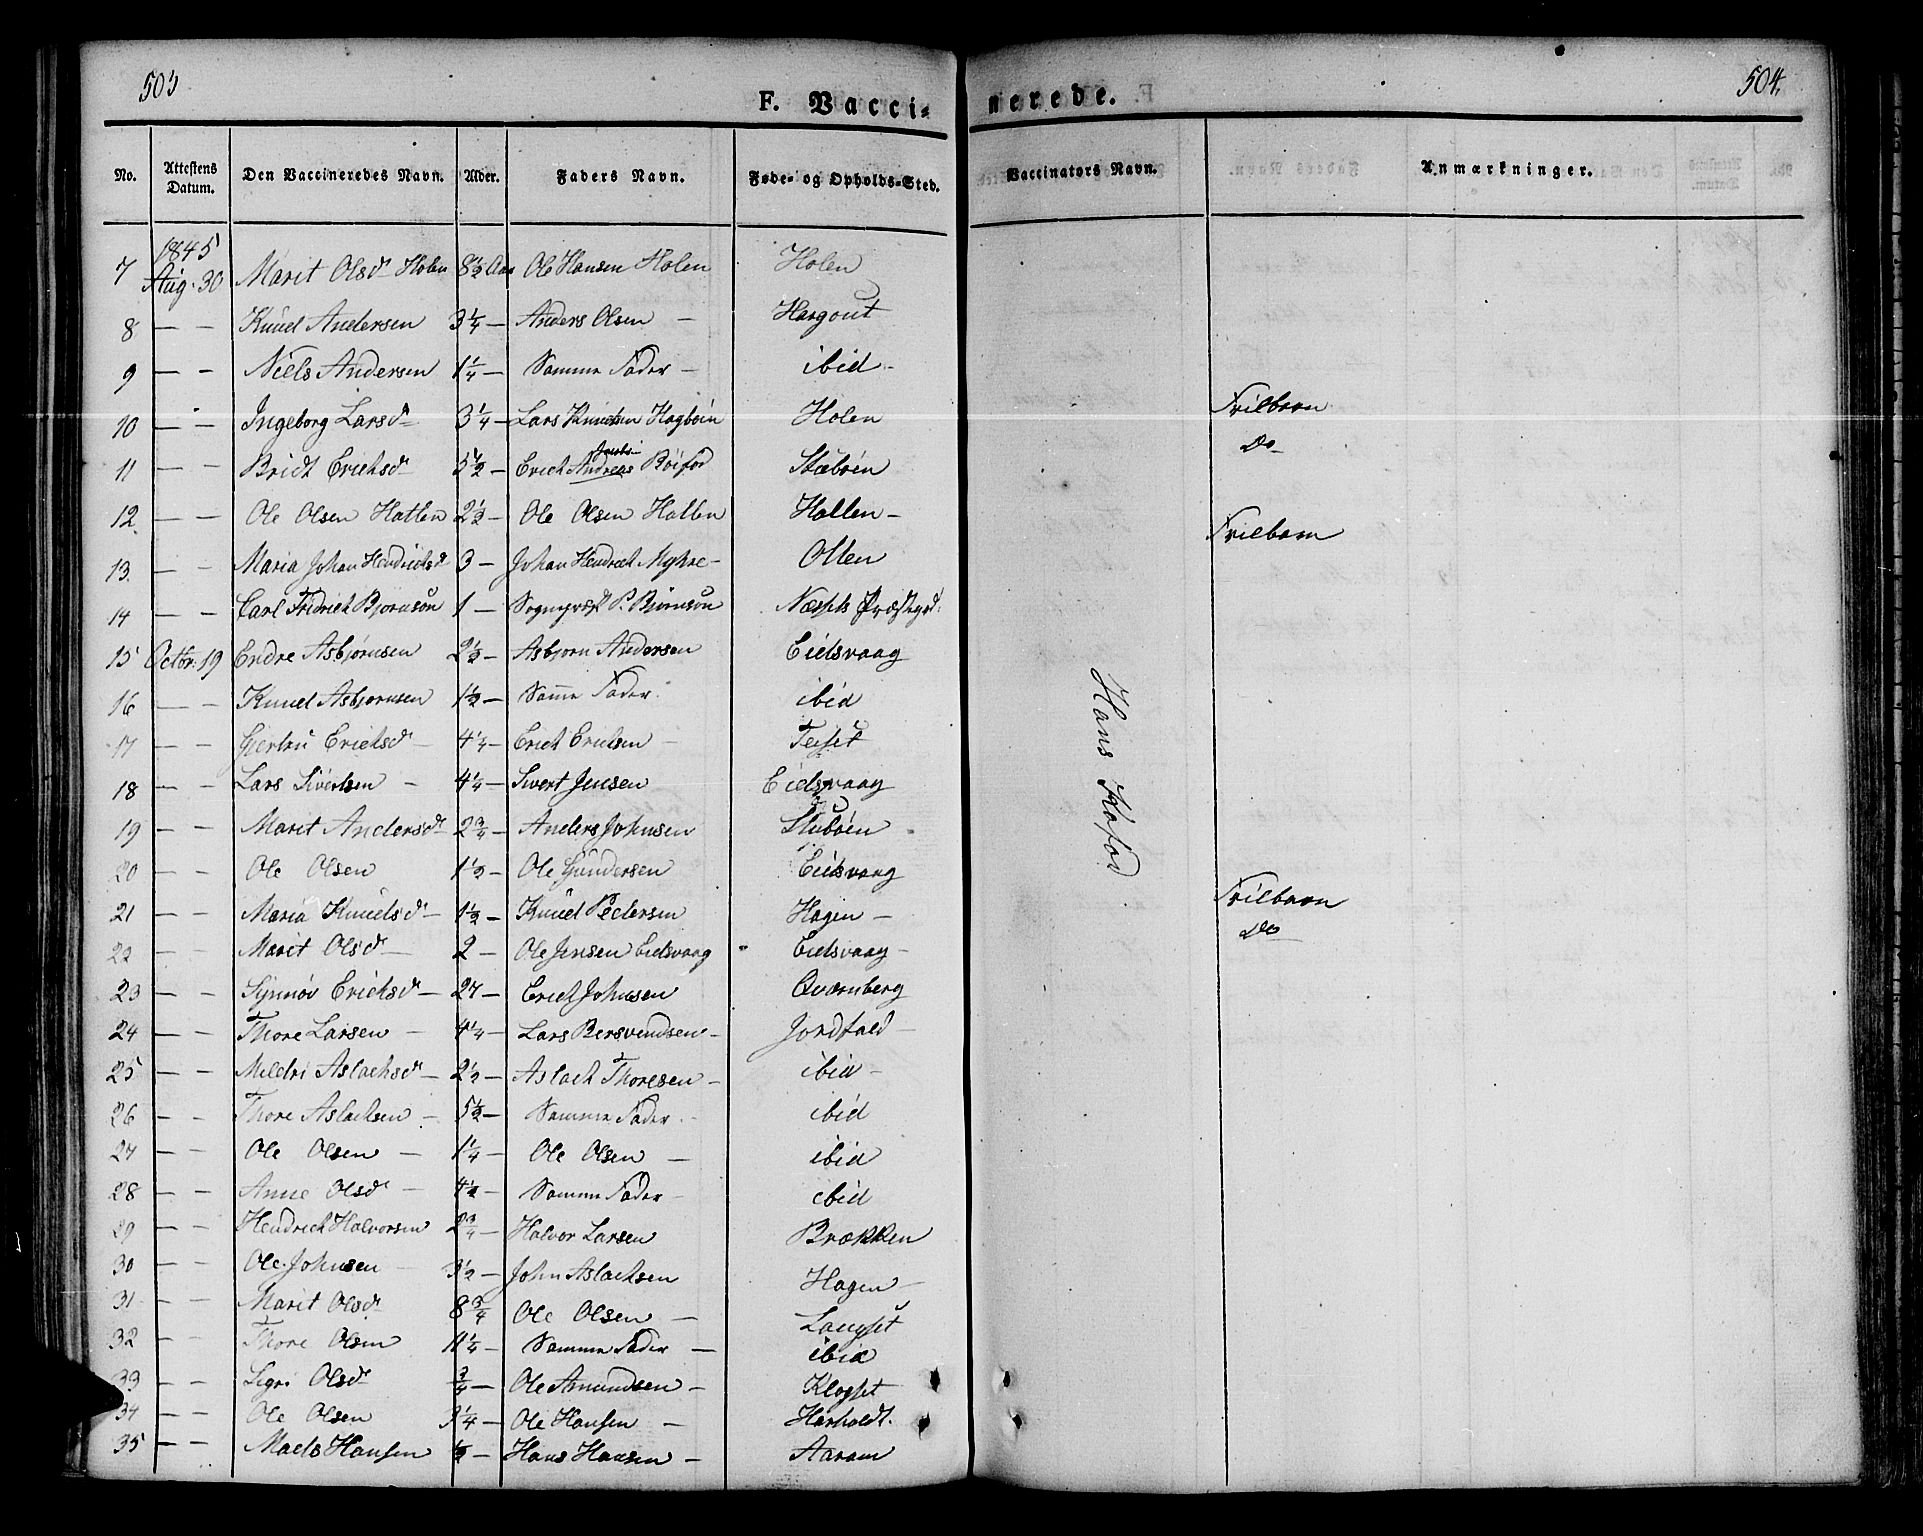 503
504.
F. Vacci-
nerede.
No. Attestens Datum. Den Vaccineredes Navn. Alder. Faders Navn. Føde- og Opholds-Sted. Vaccinators Navn. Anmærkninger.
1845
7 Aug. 30 Marit Olsd Holen 8½ Aar Ole Hansen Holen Holen
8 — — Knud Andersen 3¼ — Anders Olsen — Hargout
9 — — Niels Andersen 1¼ — Samme Fader — ibid —
10 — — Ingeborg Larsd 3¼ — Lars Knudsen Hagbøin Holen Frilbarn
11 — — Bridt Erichsd 5½ — Erich Andreas Bøifod Stubøen Do
12 — — Ole Olsen Hatten 2½ — Ole Olsen Hatten Hatten — Frilbarn
13 — — Maria Johan Hendrichsd 3 — Johan Hendrich Myhre — Otten
14 — — Carl Fridrich Bjørnson 1 — Sognepræst P. Bjørnson Næssets Præstegrd.
15 Octbr. 19 Endre Asbjørnsen 2½ — Asbjørn Andersen Eidsvaag
16 — — Knud Asbjørnsen 1½ — Same Fader ibid
17 — — Gjertru Erichsd — 4¼ — Erich Erichsen — Teiset
18 — — Lars Sivertsen — 4¼ — Sivert Jensen Eidsvaag
19 — — Marit Andersd 2¾ — Anders Johnsen Stubøen
20 — — Ole Olsen 1½ — Ole Gundersen Eidsvaag
21 — — Maria Knudsd — 1½ — Knud Pedersen Hagen — Frilbarn
22 — — Marit Olsd — 2 — Ole Jensen Eidsvaag Eidsvaag — Do
23 — — Synnøv Erichsd — 27 — Erich Johnsen Qværnberg
24 — — Thore Larsen — 4¼ — Lars Bersvendsen — Jordfald —
25 — — Mildri Aslachsd — 2½ — Aslach Thoresen — ibid —
26 — — Thore Aslachsen — 5½ — Samme Fader — ibid
27 — — Ole Olsen — 1¼ — Ole Olsen — ibid
28 — — Anne Olsd — 4½ — Samme Fader — ibid
29 — — Hendrich Halvorsen 2¾ — Halvor Larsen Brækken
30 — — Ole Johnsen — 3½ — John Aslachsen Hagen —
31 — — Marit Olsd 8¾ Ole Olsen — Langset
32 — — Thore Olsen 11¼ — Samme Fader — ibid
33 — — Sigri Olsd ¾ — Ole Amundsen — Klogset
34 — — Ole Olsen 3¼ — Ole Hansen — Harholdt.
35 — — Mads Hansen ½ — Hans Hansen — Aaram
Hans Kofod